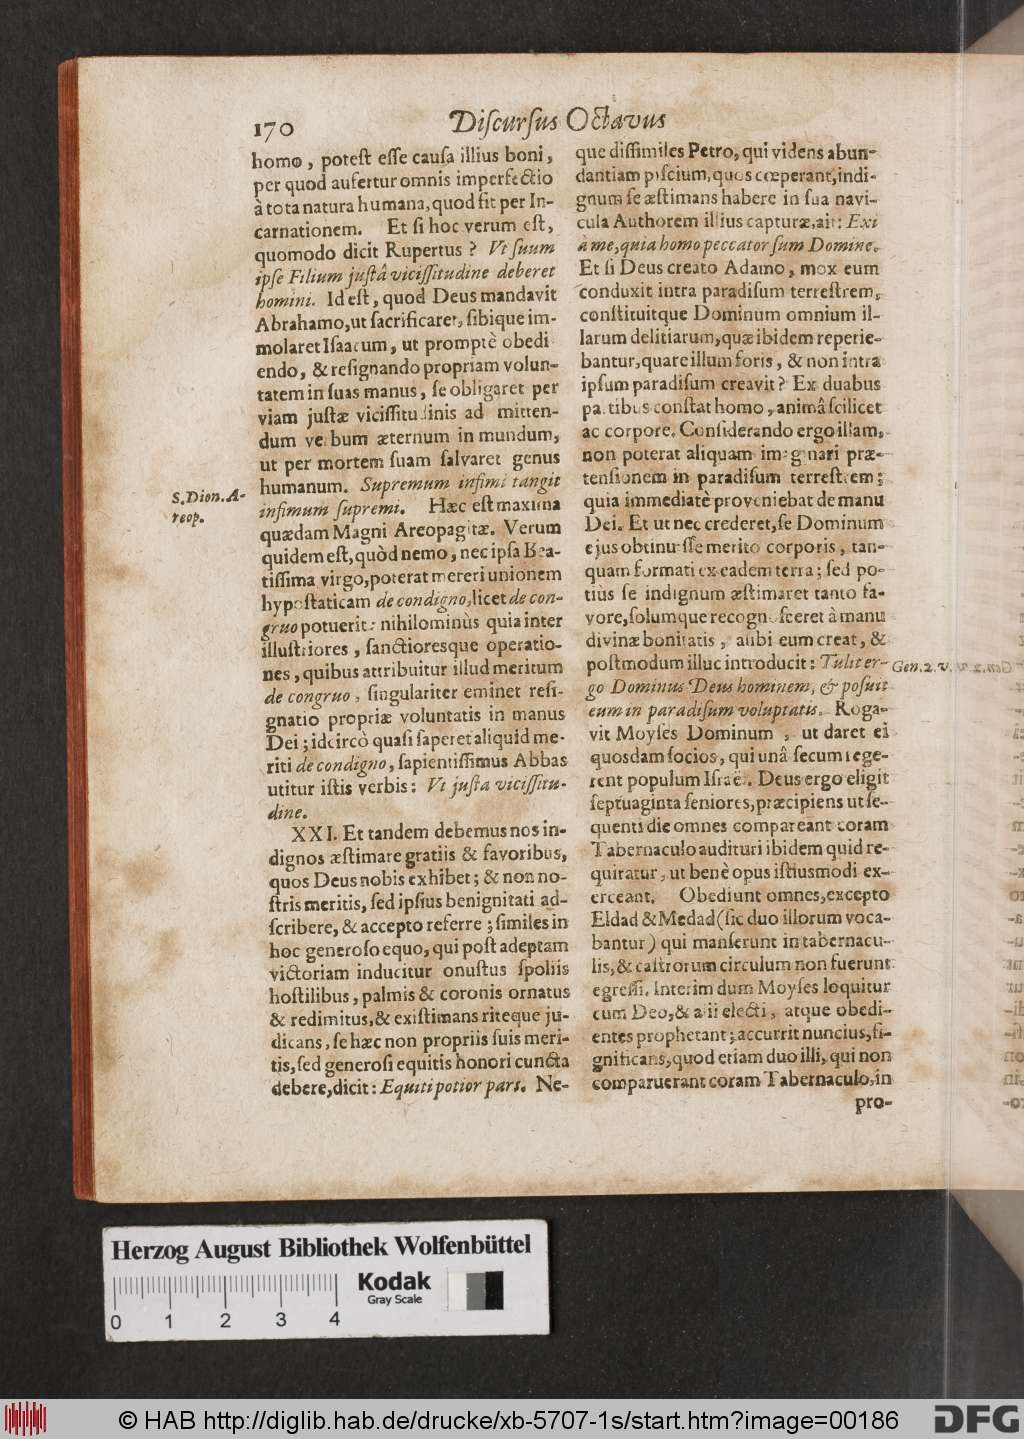 170 Diſcurſus Octavus
homo, poteſt eſſe cauſa illius boni,
per quod aufertur omnis imperfectio
à tota natura humana, quod fit per In-
carnationem. Et ſi hoc verum eſt,
quomodo dicit Rupertus? Vt ſuum
ipſe Filium juſtâ viciſſitudine deberet
homini. Id eſt, quod Deus mandavit
Abrahamo, ut ſacrificaret, ſibique im-
molaret Iſaacum, ut promptè obedi
endo, & reſignando propriam volun-
tatem in ſuas manus, ſe obligaret per
viam juſtæ viciſſitudinis ad mitten-
dum verbum æternum in mundum,
ut per mortem ſuam ſalvaret genus
humanum. Supremum infimi tangit
infimum ſupremi. Hæc eſt maxima
quædam Magni Areopagitæ. Verum
quidem eſt, quòd nemo, nec ipſa Bea-
tiſſima virgo, poterat mereri unionem
hypoſtaticam de condigno, licet de con-
gruo potuerit: nihilominùs quia inter
illuſtriores, ſanctioresque operatio-
nes, quibus attribuitur illud meritum
de congruo, ſingulariter eminet reſi-
gnatio propriæ voluntatis in manus
Dei; idcircò quaſi ſaperet aliquid me-
riti de condigno, ſapientiſſimus Abbas
utitur iſtis verbis: Vt juſta viciſſitu-
dine.
XXI. Et tandem debemus nos in-
dignos æſtimare gratiis & favoribus,
quos Deus nobis exhibet; & non no-
ſtris meritis, ſed ipſius benignitati ad-
ſcribere, & accepto referre; ſimiles in
hoc generoſo equo, qui poſt adeptam
victoriam inducitur onuſtus ſpoliis
hoſtilibus, palmis & coronis ornatus
& redimitus, & exiſtimans riteque ju-
dicans, ſe hæc non propriis ſuis meri-
tis, ſed generoſi equitis honori cuncta
debere, dicit: Equiti potior pars. Ne-
S. Dion. A-
reop.
que diſſimiles Petro, qui videns abun-
dantiam piſcium, quos cœperant, indi-
gnum ſe æſtimans habere in ſua navi-
cula Authorem illius capturæ, ait: Exi
à me, quia homo peccator ſum Domine.
Et ſi Deus creato Adamo, mox eum
conduxit intra paradiſum terreſtrem,
conſtituitque Dominum omnium il-
larum delitiarum, quæ ibidem reperie-
bantur, quare illum foris, & non intra
ipſum paradiſum creavit? Ex duabus
partibus conſtat homo, animâ ſcilicet
ac corpore. Conſiderando ergo illam,
non poterat aliquam imaginari præ-
tenſionem in paradiſum terreſtrem;
quia immediatè proveniebat de manu
Dei. Et ut nec crederet, ſe Dominum
ejus obtinuiſſe merito corporis, tan-
quam formati ex eadem terra; ſed po-
tiùs ſe indignum æſtimaret tanto fa-
vore, ſolumque recognoſceret à manu
divinæ bonitatis, alibi eum creat, &
poſtmodum illuc introducit: Tulit er-
go Dominus Deus hominem, & poſuit
eum in paradiſum voluptatis. Roga-
vit Moyſes Dominum, ut daret ei
quosdam ſocios, qui unâ ſecum rege-
rent populum Iſraël. Deus ergo eligit
ſeptuaginta ſeniores, præcipiens ut ſe-
quenti die omnes compareant coram
Tabernaculo audituri ibidem quid re-
quiratur, ut benè opus iſtiusmodi ex-
erceant. Obediunt omnes, excepto
Eldad & Medad (ſic duo illorum voca-
bantur) qui manſerunt in tabernacu-
lis, & caſtrorum circulum non fuerunt
egreſſi. Interim dum Moyſes loquitur
cum Deo, & alii electi, atque obedi-
entes prophetant; accurrit nuncius, ſi-
gnificans, quod etiam duo illi, qui non
comparuerant coram Tabernaculo, in
pro-
Gen. 2. v.
Herzog August Bibliothek Wolfenbüttel
0 1 2 3 4
Kodak
Gray Scale
© HAB http://diglib.hab.de/drucke/xb-5707-1s/start.htm?image=00186
DFG